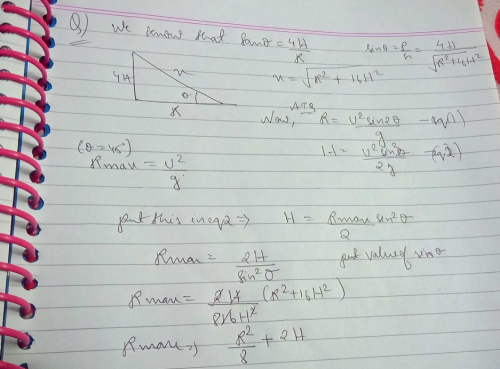 Q) We know that tanθ = 4H/R
sinθ = P/h = 4H/√R²+16H²
4H
x
θ
R
x = √R² + 16H²
ATQ
Now, R = U² sin2θ/g - eq(1)
H = U² sin²θ/2g - eq(2)
(θ = 45°)
Rmax = U²/g
put this in eq2 => H = Rmax sin²θ/2
Rmax = 2H/sin²θ
put value of sinθ
Rmax = 2H/16H² (R²+16H²)
Rmax => R²/8 + 2H